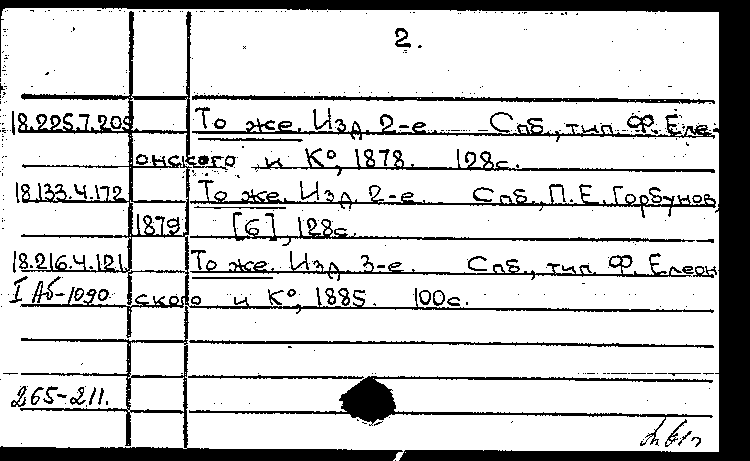 2.
18.225.7.205 То же. Изд. 2-е. Спб., тип. Ф. Еле-
онского и К°, 1878. 128с.
18.133.4.172 То же. Изд. 2-е. Спб., П.Е. Горбунов,
1879. [6], 128с.
18.216.4.121 То же. Изд. 3-е. Спб., тип. Ф. Елеон
I Аб-1090 ского и К°, 1885. 100с.
265-211.